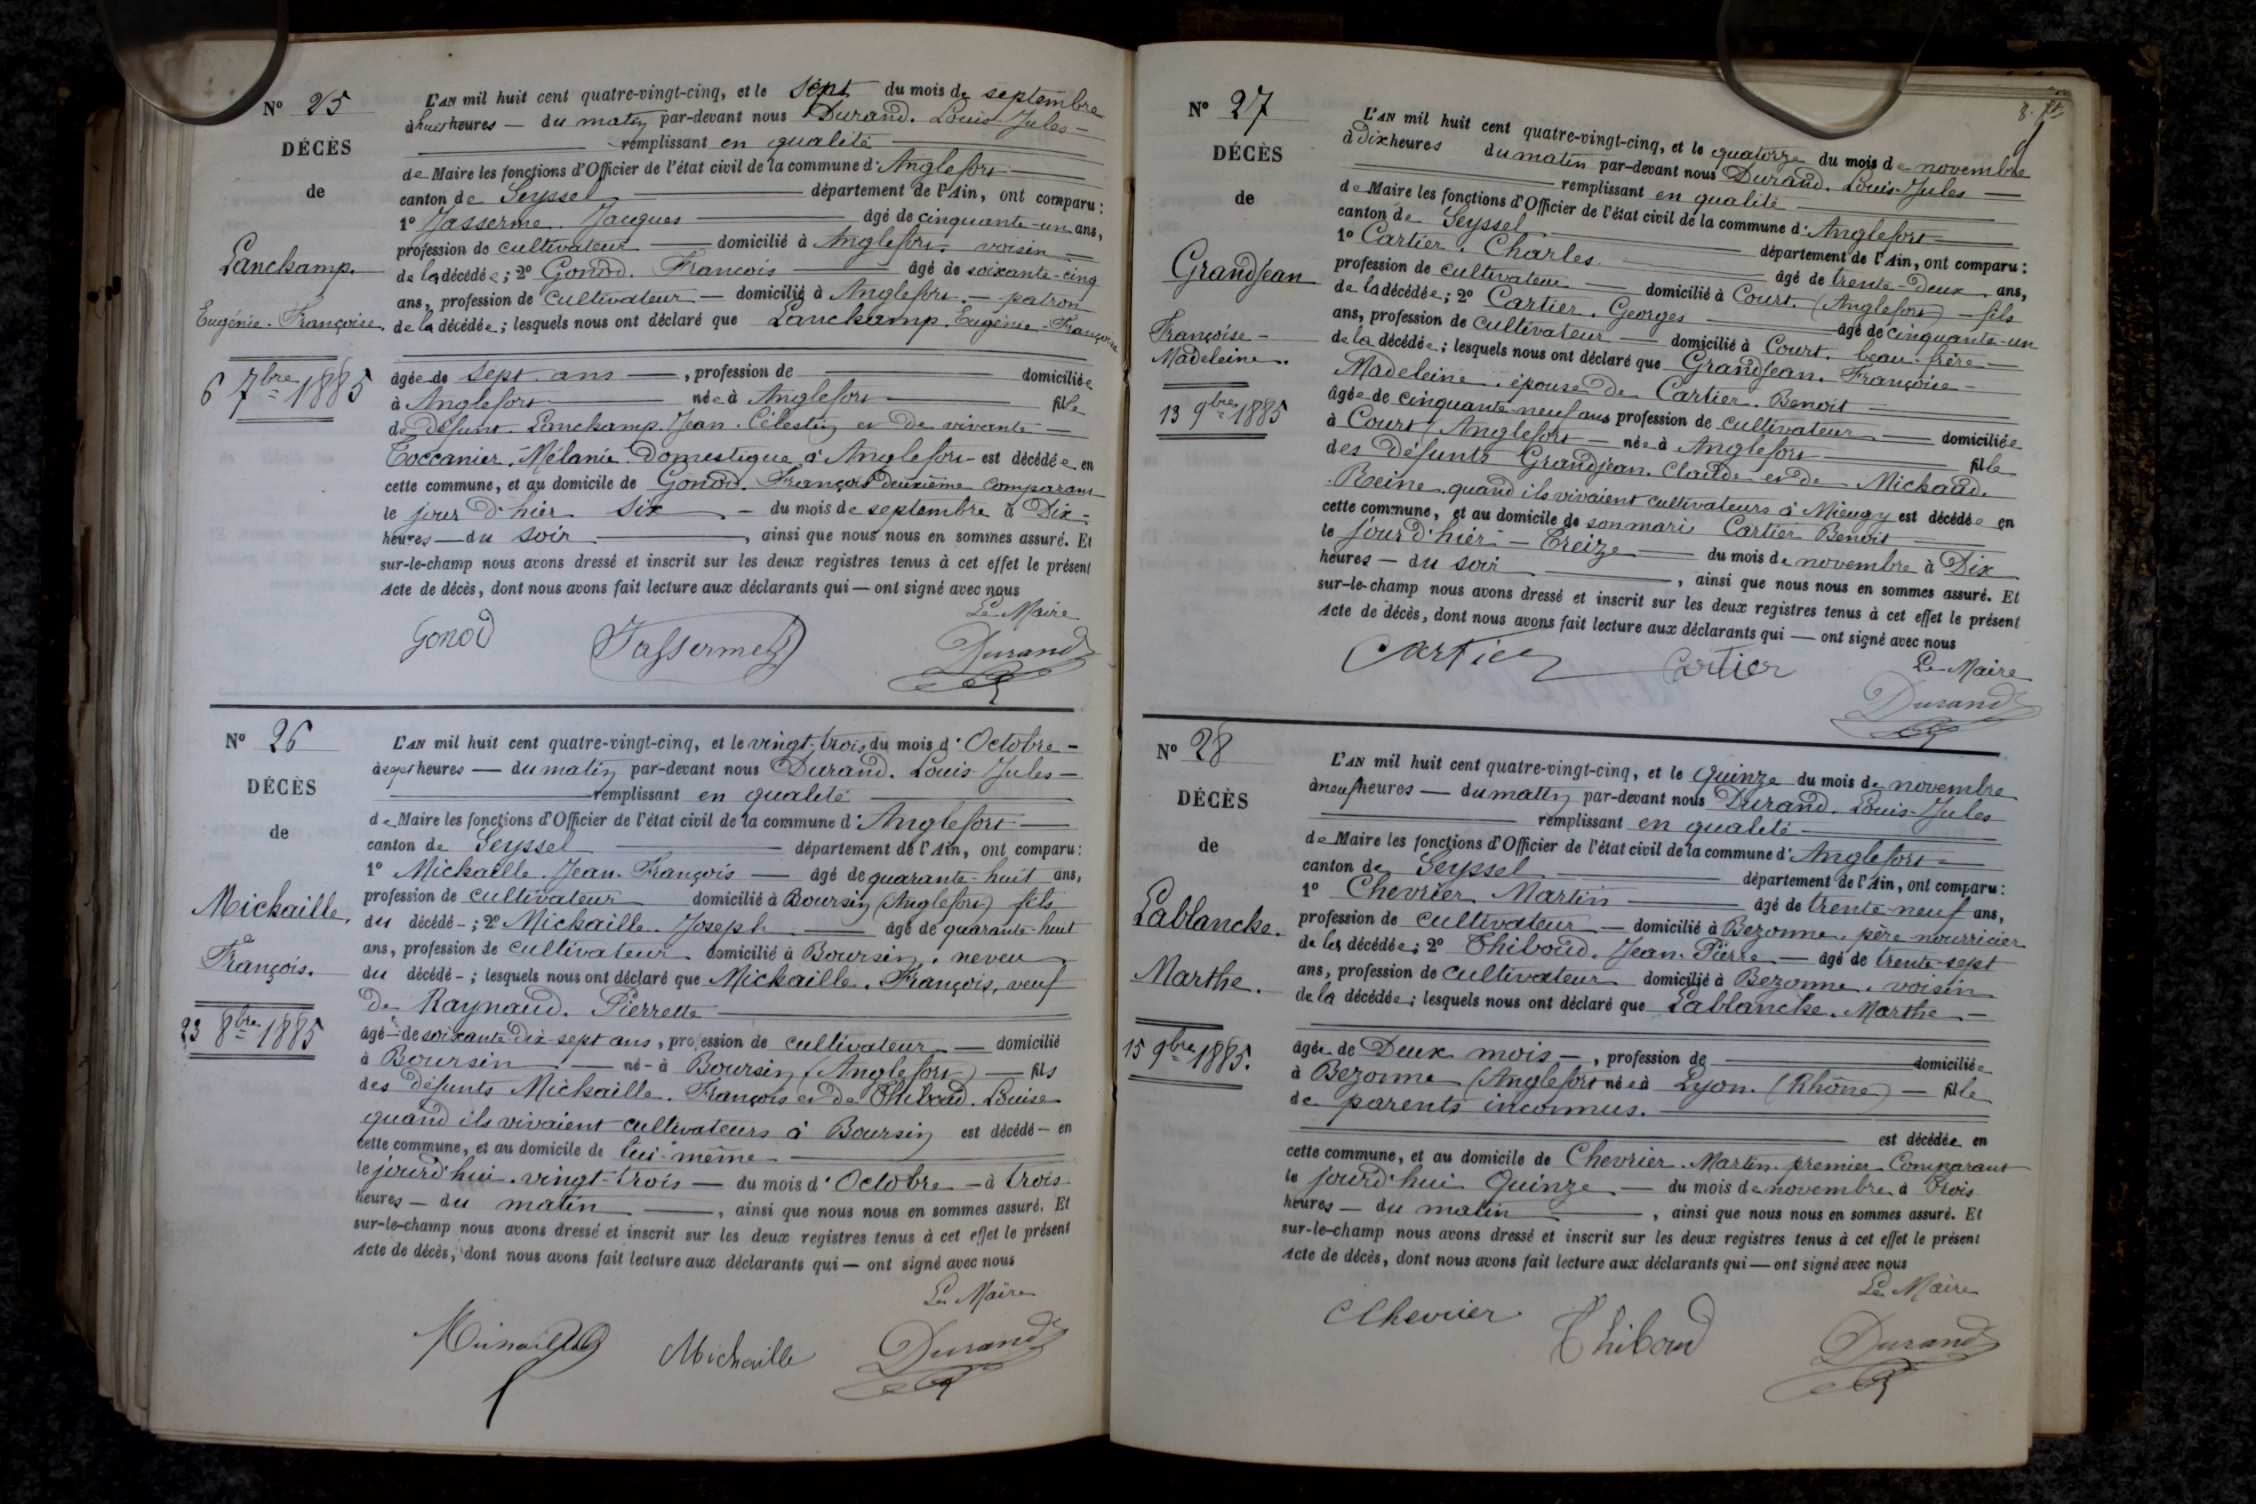 N° 25
DÉCÈS
de
Lanckamp.
Eugénie. Françoise.
6 7bre 1885
L'AN mil huit cent quatre-vingt-cinq, et le sept du mois de septembre
à huit heures — du matin par-devant nous Durand. Louis Jules —
remplissant en qualité
de Maire les fonctions d'Officier de l'état civil de la commune d'Anglefort
canton de Seyssel département de l'Ain, ont comparu:
1° Jasserme. Jacques âgé de cinquante-un ans,
profession de cultivateur — domicilié à Anglefort. voisin
de la décédée; 2° Gonod. François âgé de soixante-cinq
ans, profession de cultivateur — domicilié à Anglefort. — patron
de la décédée; lesquels nous ont déclaré que Lanckamp. Eugénie. Françoise
âgée de sept ans —, profession de domiciliée
à Anglefort née à Anglefort fille
de défunt Lanckamp. Jean. Célestin et de vivante —
Toccanier. Mélanie Domestique à Anglefort est décédée en
cette commune, et au domicile de Gonod. François deuxième comparant
le jour d'hier six — du mois de septembre à Dix
heures — du soir, ainsi que nous nous en sommes assuré. Et
sur-le-champ nous avons dressé et inscrit sur les deux registres tenus à cet effet le présent
Acte de décès, dont nous avons fait lecture aux déclarants qui — ont signé avec nous
Le Maire
Gonod Jasserme Durand
N° 26
DÉCÈS
de
Mickaille.
François.
23 8bre 1885
L'AN mil huit cent quatre-vingt-cinq, et le vingt-trois du mois d'Octobre —
à sept heures — du matin par-devant nous Durand. Louis Jules —
remplissant en qualité
de Maire les fonctions d'Officier de l'état civil de la commune d'Anglefort
canton de Seyssel département de l'Ain, ont comparu:
1° Mickaille. Jean. François — âgé de quarante-huit ans,
profession de cultivateur domicilié à Boursin (Anglefort) fils
du décédé -; 2° Mickaille. Joseph âgé de quarante-huit
ans, profession de cultivateur domicilié à Boursin. neveu
du décédé -; lesquels nous ont déclaré que Mickaille. François, veuf
de Raynaud. Pierrette
âgé - de soixante dix-sept ans, profession de cultivateur — domicilié
à Boursin — né - à Boursin (Anglefort) — fils
des défunts Mickaille. François et de Thiboud. Louise
quand ils vivaient cultivateurs à Boursin est décédé — en
cette commune, et au domicile de lui-même
le jourd'hui. vingt-trois — du mois d'Octobre — à trois
heures — du matin —, ainsi que nous nous en sommes assuré. Et
sur-le-champ nous avons dressé et inscrit sur les deux registres tenus à cet effet le présent
Acte de décès, dont nous avons fait lecture aux déclarants qui — ont signé avec nous
Le Maire
Michaille Durand
N° 27
DÉCÈS
de
Grandjean
Françoise —
Madeleine.
13 9bre 1885
L'AN mil huit cent quatre-vingt-cinq, et le quatorze du mois de novembre
à Dix heures du matin par-devant nous Durand. Louis-Jules —
remplissant en qualité
de Maire les fonctions d'Officier de l'état civil de la commune d'Anglefort
canton de Seyssel département de l'Ain, ont comparu:
1° Cartier. Charles âgé de trente-deux ans,
profession de cultivateur — domicilié à Court. (Anglefort) — fils
de la décédée; 2° Cartier. Georges âgé de cinquante-un
ans, profession de cultivateur — domicilié à Court. beau-frère —
de la décédée; lesquels nous ont déclaré que Grandjean. Françoise —
Madeleine. épouse de Cartier. Benoit
âgée de cinquante-neuf ans profession de cultivateur — domiciliée
à Court (Anglefort — née à Anglefort fille
des défunts Grandjean. Claude et de Michaud.
Reine quand ils vivaient cultivateurs à Mieugy est décédée en
cette commune, et au domicile de son mari Cartier Benoit
le jour d'hier — Treize — du mois de novembre à Dix
heures — du soir, ainsi que nous nous en sommes assuré. Et
sur-le-champ nous avons dressé et inscrit sur les deux registres tenus à cet effet le présent
Acte de décès, dont nous avons fait lecture aux déclarants qui — ont signé avec nous
Le Maire
Cartier Cartier Durand
N° 28
DÉCÈS
de
Lablancke.
Marthe.
15 9bre 1885.
L'AN mil huit cent quatre-vingt-cinq, et le Quinze du mois de novembre
à neuf heures — du matin par-devant nous Durand. Louis-Jules
remplissant en qualité
de Maire les fonctions d'Officier de l'état civil de la commune d'Anglefort
canton de Seyssel département de l'Ain, ont comparu:
1° Chevrier Martin âgé de trente-neuf ans,
profession de cultivateur — domicilié à Bezonne. père nourricier
de la décédée; 2° Thiboud. Jean. Pierre — âgé de trente-sept
ans, profession de cultivateur domicilié à Bezonne. voisin
de la décédée; lesquels nous ont déclaré que Lablancke. Marthe —
âgée de Deux mois —, profession de domiciliée
à Bezonne (Anglefort née à Lyon. (Rhône) — fille
de parents inconnus.
est décédée en
cette commune, et au domicile de Chevrier. Martin. premier Comparant
le jourd'hui Quinze — du mois de novembre à trois
heures — du matin, ainsi que nous nous en sommes assuré. Et
sur-le-champ nous avons dressé et inscrit sur les deux registres tenus à cet effet le présent
Acte de décès, dont nous avons fait lecture aux déclarants qui — ont signé avec nous
Le Maire
Chevrier Thiboud Durand